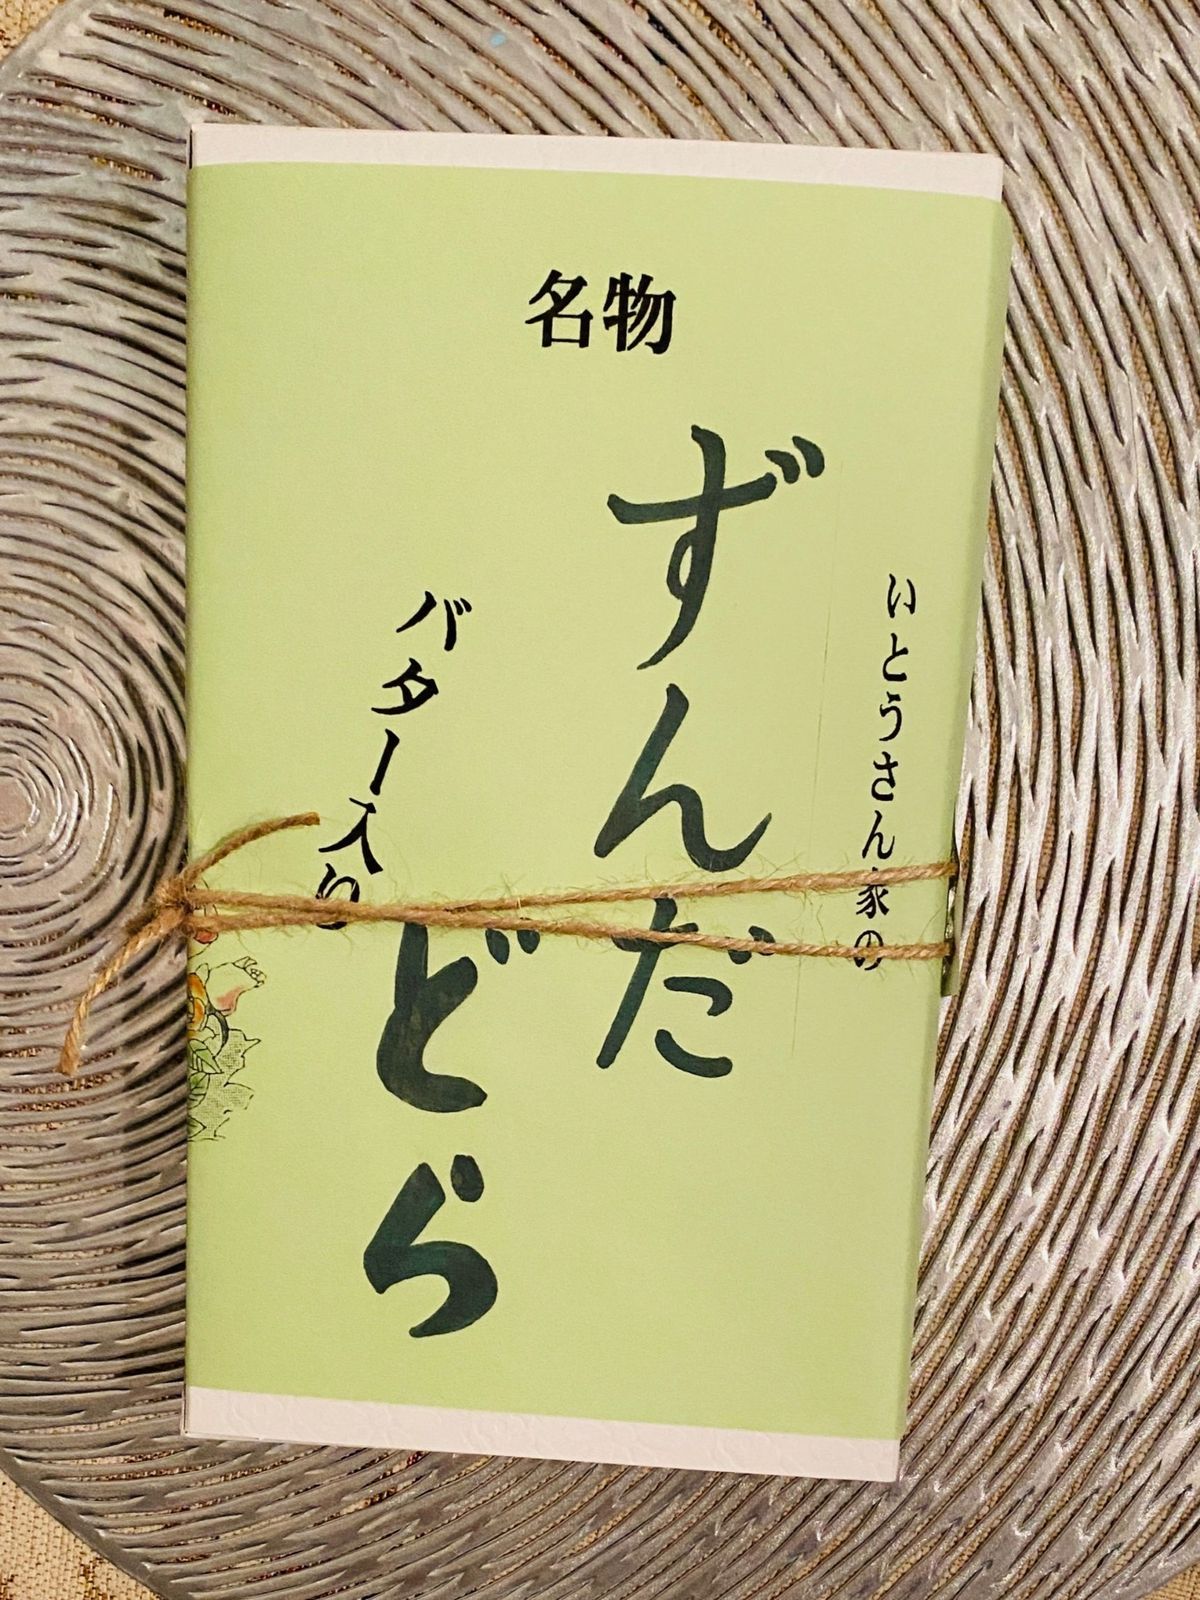 名物
いとうさん家の
ずんだ
バター入り
どら